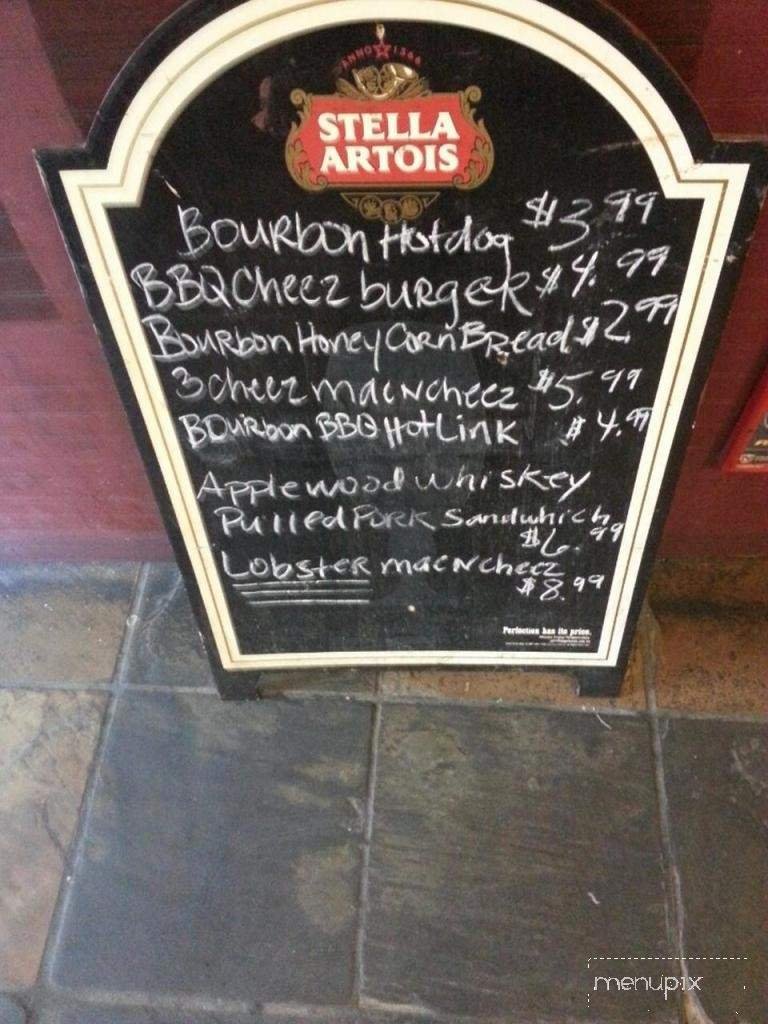 ANNO 1366
STELLA
ARTOIS
Bourbon Hotdog $3.99
BBQ Cheez burger $4.99
Bourbon Honey Corn Bread $2.99
3 cheez mac N cheez $5.99
Bourbon BBQ Hot Link $4.99
Applewood whiskey
Pulled Pork Sandwhich
$6.99
Lobster mac N cheez
$8.99
Perfection has its price.
menupix